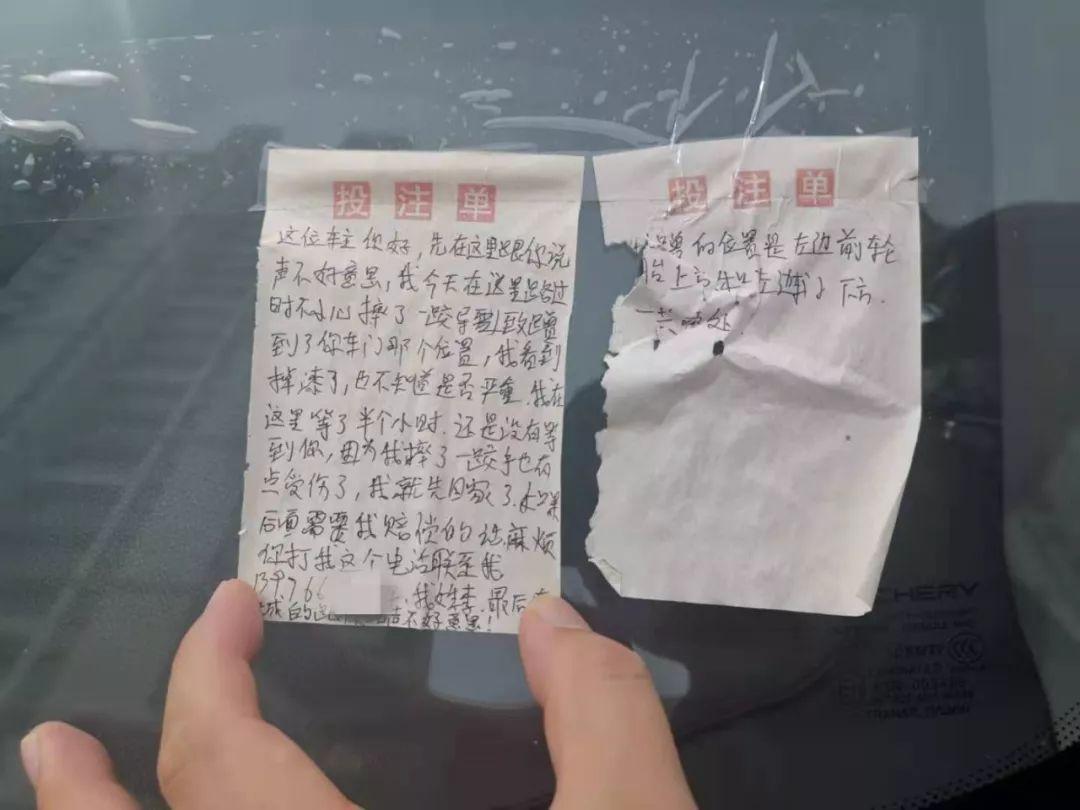 投注单
这位车主你好，先在这里跟你说
声不好意思，我今天在这里路过
时不小心摔了一跤导致踫
到了你车门那个位置，我看到
掉漆了，也不知道是否严重.我在
这里等了半个小时.还是没有等
到你，因为我摔了一跤手也有
点受伤了，我就先回家了.如果
后面需要我赔偿的话麻烦
你打我这个电话联系我
13976 我姓李.最后
的 声不好意思！
投注单
的位置是左边前轮
胎上
一点点处.
CHERY